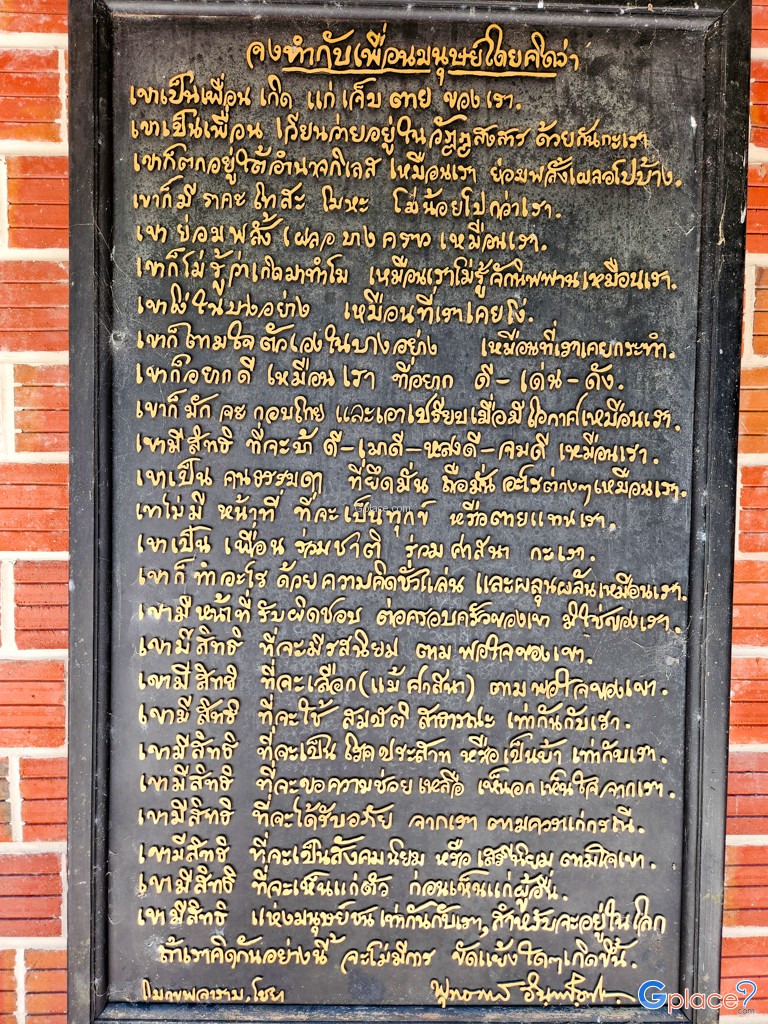 จงทำกับเพื่อนมนุษย์โดยคิดว่า
เขาเป็นเพื่อน เกิด แก่ เจ็บ ตาย ของเรา.
เขาเป็นเพื่อน เวียนว่ายอยู่ในวัฏฏสงสาร ด้วยกันกะเรา
เขาก็ตกอยู่ใต้อำนาจกิเลส เหมือนเรา ย่อมพลั้งเผลอไปบ้าง.
เขาก็มี ราคะ โทสะ โมหะ ไม่น้อยไปกว่าเรา.
เขา ย่อมพลั้งเผลอ บางคราว เหมือนเรา.
เขาก็ไม่รู้ว่าเกิดมาทำไม เหมือนเราไม่รู้จักนิพพานเหมือนเรา.
เขาโง่ในบางอย่าง เหมือนที่เราเคยโง่.
เขาก็ตามใจตัวเองในบางอย่าง เหมือนที่เราเคยกระทำ.
เขาก็อยากดี เหมือนเรา ที่อยาก ดี-เด่น-ดัง.
เขาก็มักจะ กอบโกย และเอาเปรียบเมื่อมีโอกาสเหมือนเรา.
เขามีสิทธิ ที่จะบ้าดี-เมาดี-หลงดี-จมดี เหมือนเรา.
เขาเป็น คนธรรมดา ที่ยึดมั่น ถือมั่น อะไรต่างๆเหมือนเรา.
เขาไม่มี หน้าที่ ที่จะเป็นทุกข์ หรือตายแทนเรา.
เขาเป็น เพื่อน ร่วมชาติ ร่วมศาสนา กะเรา.
เขาก็ทำอะไร ด้วยความคิดชั่วแล่น และผลุนผลันเหมือนเรา.
เขามีหน้าที่ รับผิดชอบ ต่อครอบครัวของเขา มิใช่ของเรา.
เขามีสิทธิ ที่จะมีรสนิยม ตามพอใจของเขา.
เขามีสิทธิ ที่จะเลือก(แม้ศาสนา) ตามพอใจของเขา.
เขามีสิทธิ ที่จะใช้ สมบัติ สาธารณะ เท่ากันกับเรา.
เขามีสิทธิ ที่จะเป็นโรคประสาท หรือเป็นบ้า เท่ากับเรา.
เขามีสิทธิ ที่จะขอความช่วยเหลือ เห็นอกเห็นใจ จากเรา.
เขามีสิทธิ ที่จะได้รับอภัย จากเรา ตามควรแก่กรณี.
เขามีสิทธิ ที่จะเป็นสังคมนิยม หรือ เสรีนิยม ตามใจเขา.
เขามีสิทธิ ที่จะเห็นแก่ตัว ก่อนเห็นแก่ผู้อื่น.
เขามีสิทธิ แห่งมนุษย์ชน เท่ากันกับเรา, สำหรับจะอยู่ในโลก
ถ้าเราคิดกันอย่างนี้ จะไม่มีการ ขัดแย้งใดๆเกิดขึ้น.
โมกขพลาราม, ไชยา พุทธทาส อินทปัญโญ
Gplace.com
Gplace?.com